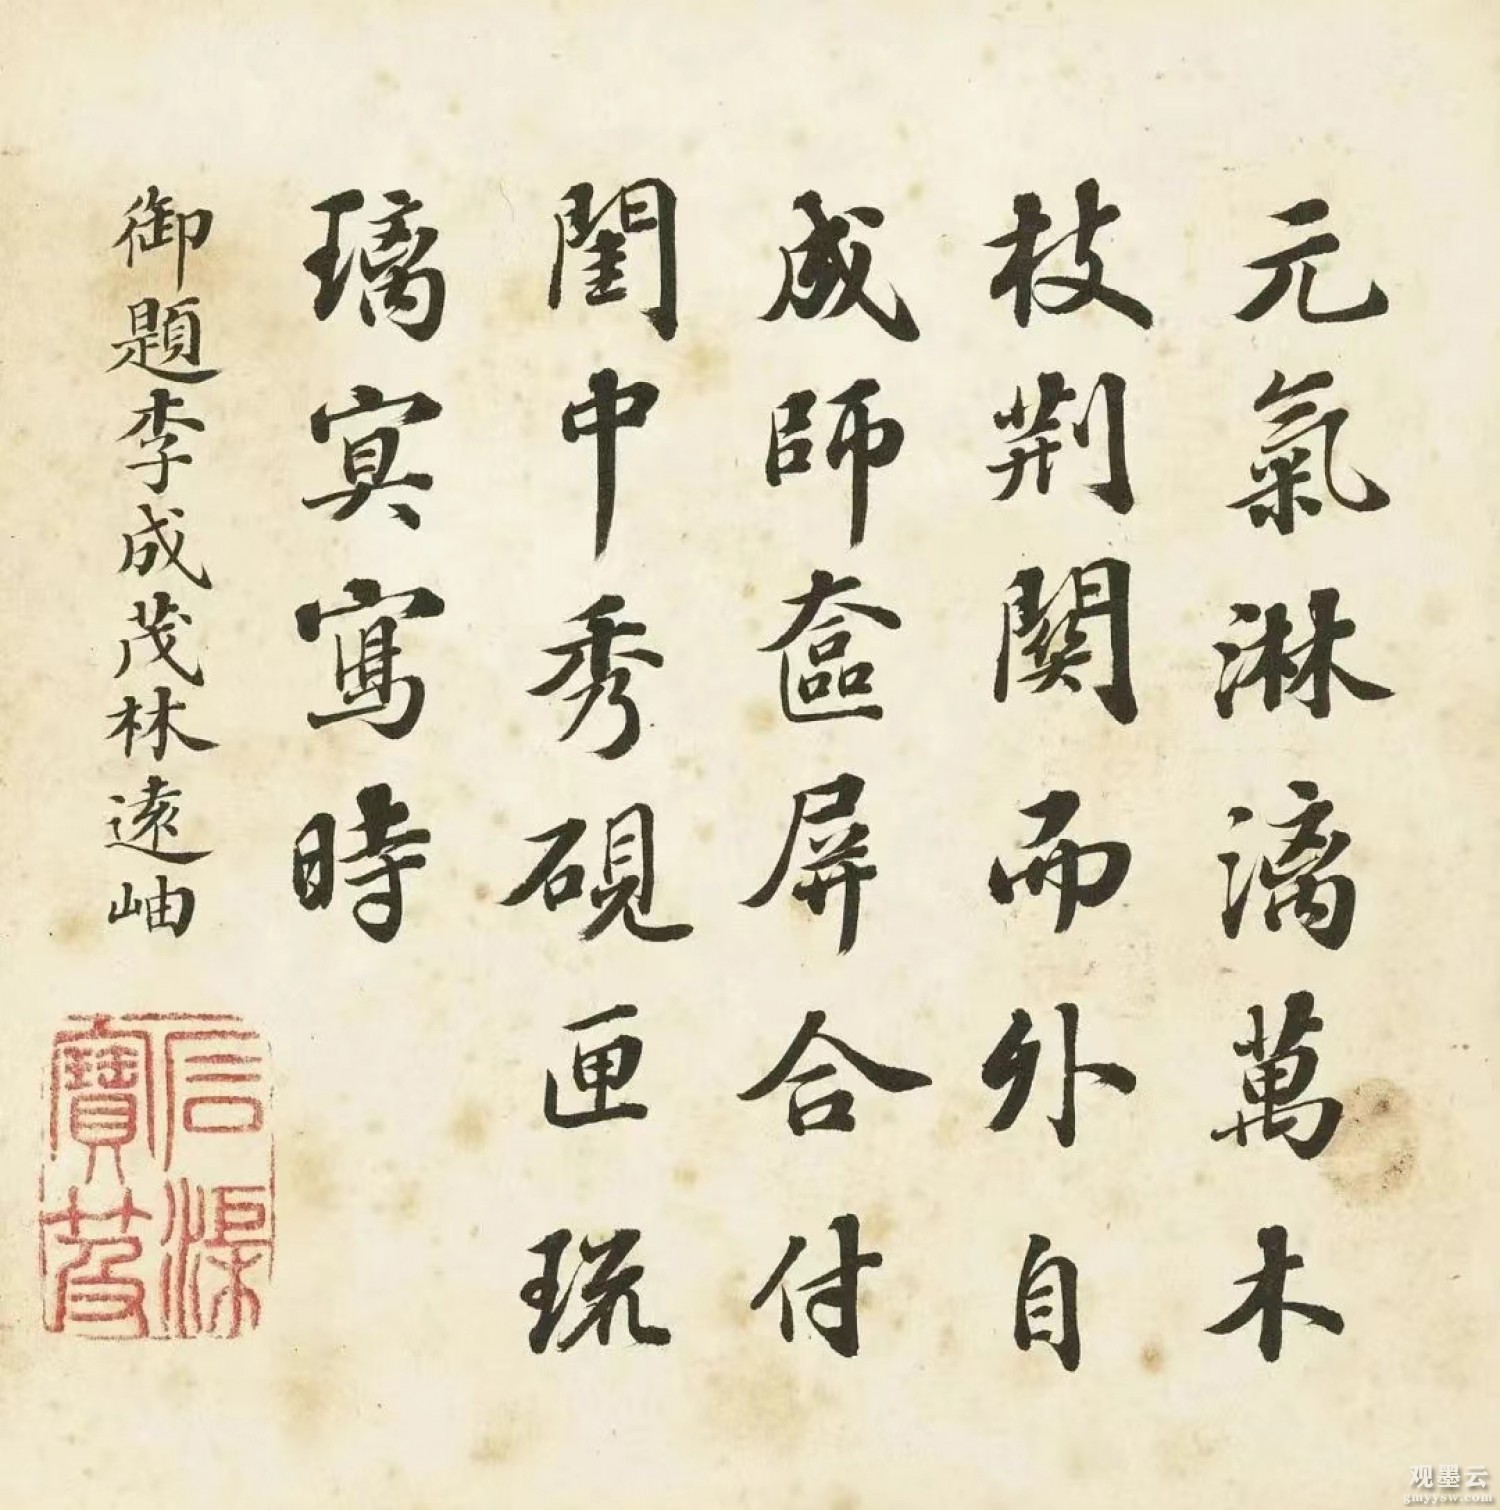 元氣淋漓萬木
枝荆關而外自
成師奩屏合付
閨中秀硯匣琉
璃寞寫時
御題李成茂林遠岫
信
寶
观墨云
gmyysw.com